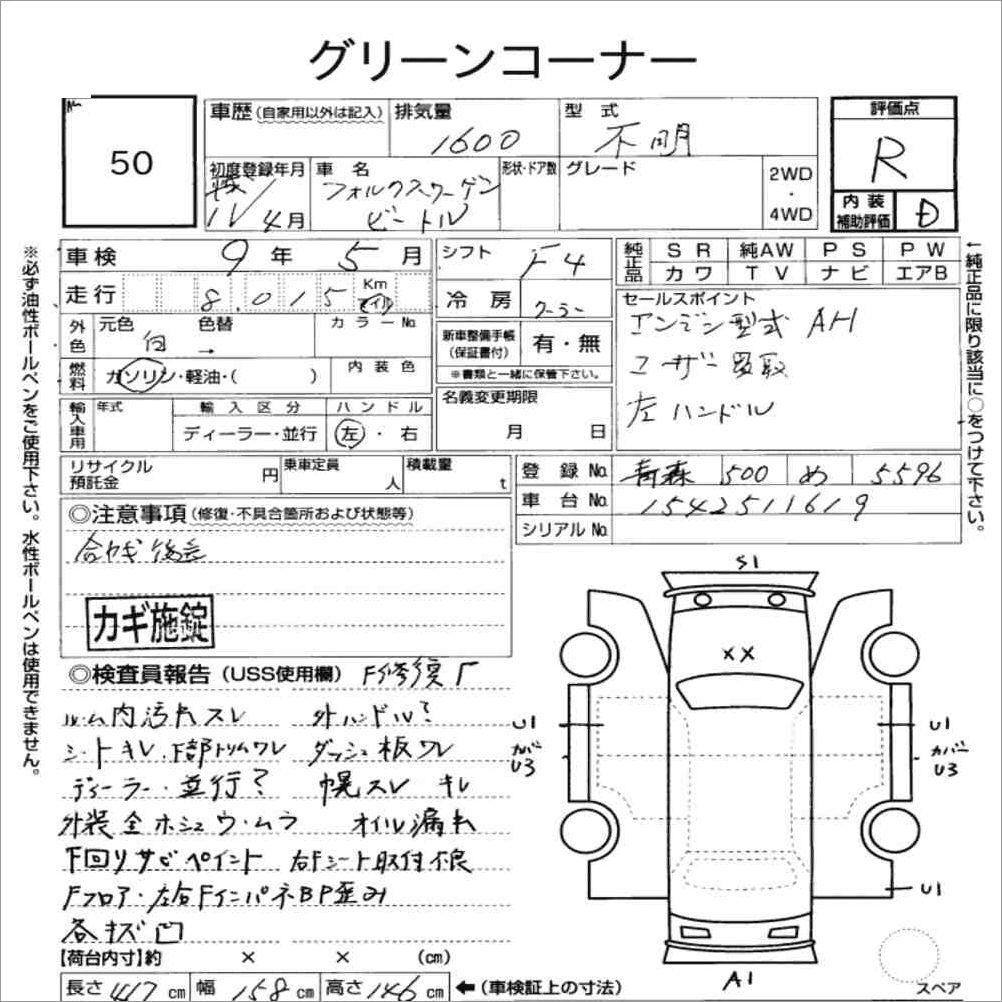 グリーンコーナー
No.
50
車歴 (自家用以外は記入)
排気量
1600
型式
不明
評価点
R
初度登録年月
11/4月
車名
フォルクスワーゲン
ビートル
形状・ドア数
グレード
2WD
・
4WD
内装
補助評価
D
車検 9年 5月
シフト F4
純正品
SR 純AW PS PW
カワ TV ナビ エアB
走行 8,015 Km マイル
冷房 クーラー
セールスポイント
エンジン型式 AH
ユーザー買取
左ハンドル
外色
元色 白 色替 → カラーNo.
新車整備手帳
(保証書付)
有・無
※書類と一緒に保管下さい。
燃料
ガソリン・軽油・( )
内装色
名義変更期限
月 日
輸入車用
年式
輸入区分
ディーラー・並行
ハンドル
左・右
リサイクル
預託金 円
乗車定員 人
積載量 t
登録No. 青森 500 め 5596
車台No. 1542511619
シリアルNo.
◎注意事項 (修復・不具合箇所および状態等)
カギ施錠
◎検査員報告 (USS使用欄) F修復「
ルーム内汚れスレ 外ハンドル?
シートキレ、下部トリムワレ ダッシュ板ワレ
ディーラー・並行? 幌スレ キレ
外装全ホシュウ・ムラ オイル漏れ
下回りサビペイント 右Fシート取付不良
Fフロア・左右FインパネBP歪み
各キズ凹
【荷台内寸】約 × × (cm)
長さ 417 cm 幅 158 cm 高さ 146 cm ←(車検証上の寸法)
※必ず油性ボールペンをご使用下さい。水性ボールペンは使用できません。
←純正品に限り該当に○をつけて下さい。
S1
XX
U1
カバー
U3
U1
カバー
U3
U1
A1
スペア